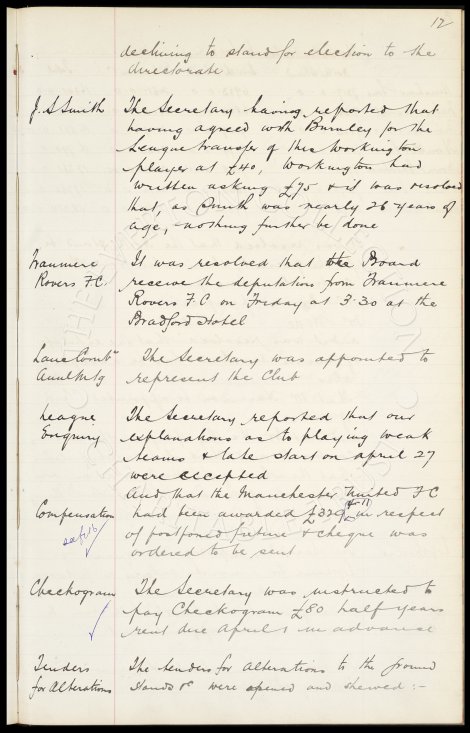 12
declining to stand for election to the
directorate
J. S Smith
The Secretary having reported that
having agreed with Burnley for the
League transfer of this Workington
player at £40, Workington had
written asking £75 & it was resolved
that, as Smith was nearly 26 years of
age, nothing further be done
Tranmere
Rovers F.C.
It was resolved that the Board
receive the deputation from Tranmere
Rovers F.C on Friday at 3.30 at the
Bradford Hotel
Lanc Combn
Annl Mtg
The Secretary was appointed to
represent the Club
League
Enquiry
The Secretary reported that our
explanations as to playing weak
teams & late start on april 27
were accepted
And that the Manchester United FC
Compensation
had been awarded £329 in respect
of postponed fixture & cheque was
ordered to be sent
Checkogram
The Secretary was instructed to
pay Checkogram £80 half years
rent due April 1 in advance
Tenders
for Alterations
The tenders for alterations to the ground
stands &c were opened and shewed :-